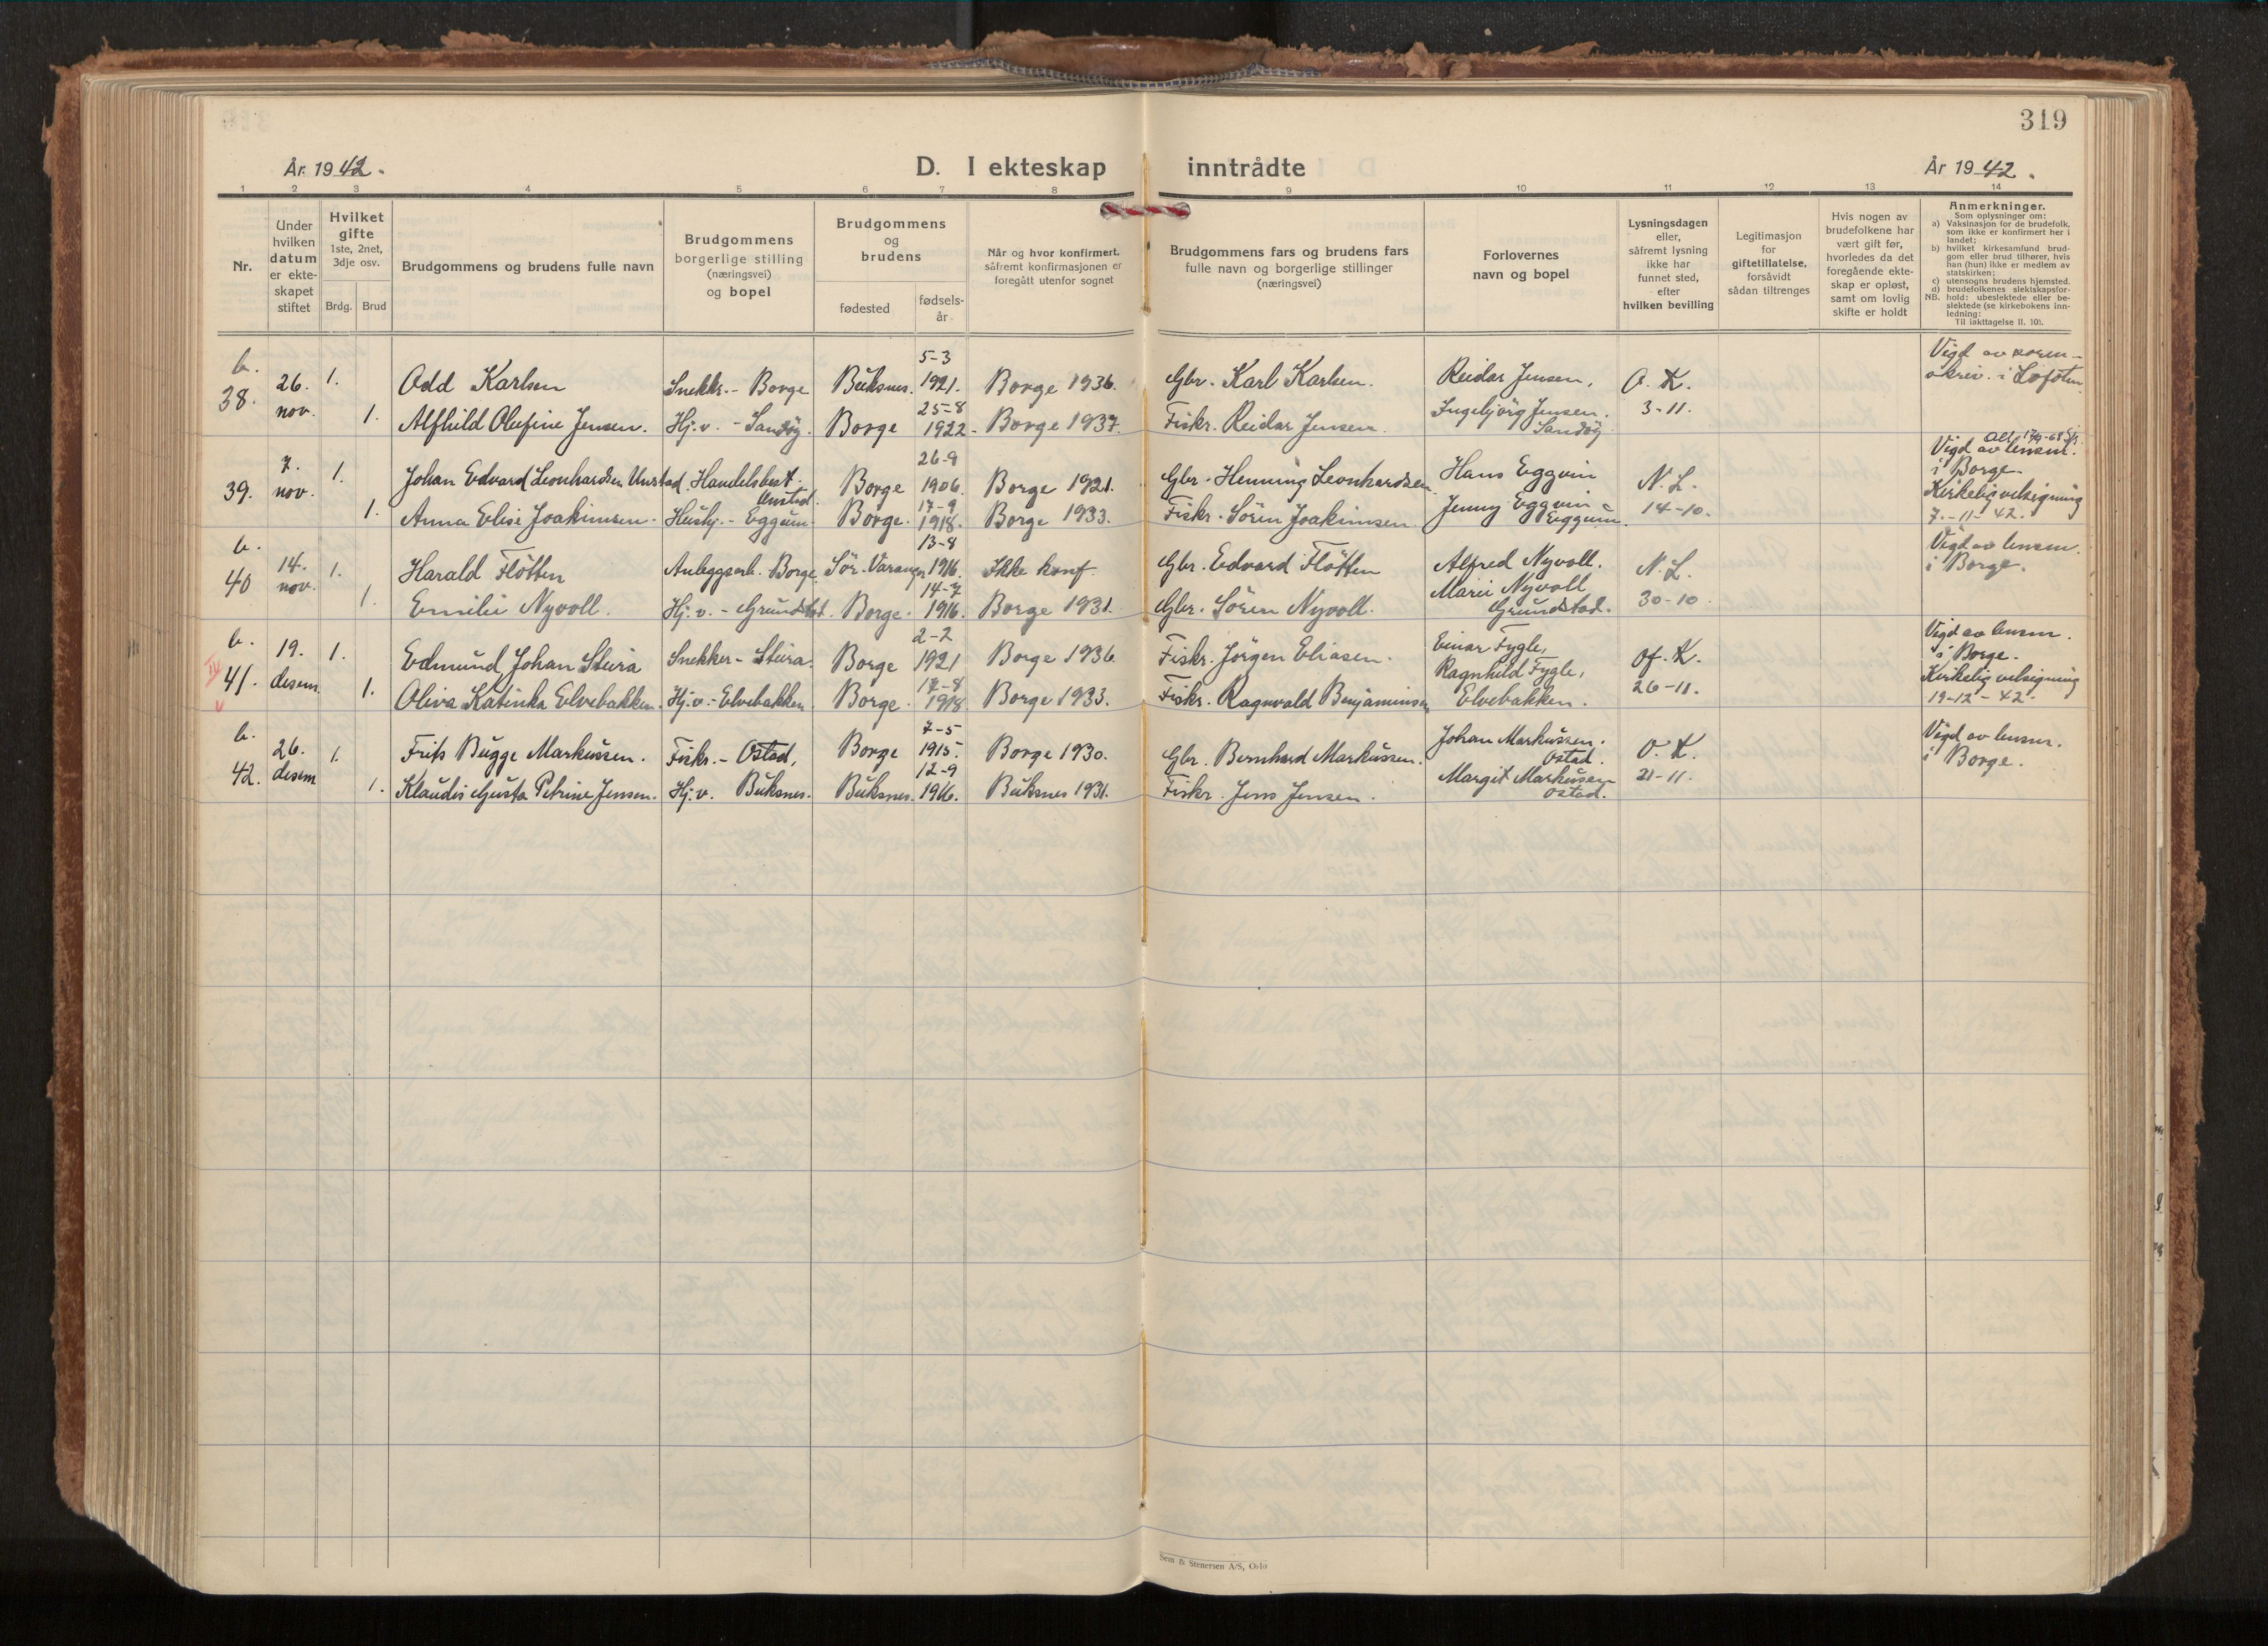 319
År 1942.
D. I ekteskap inntrådte
År 1942.
1 2 3 4 5 6 7 8 9 10 11 12 13 14
Nr.
Under
hvilken
datum
er ekte-
skapet
stiftet
Hvilket
gifte
1ste, 2net,
3dje osv.
Brdg. Brud
Brudgommens og brudens fulle navn
Brudgommens
borgerlige stilling
(næringsvei)
og bopel
Brudgommens
og
brudens
fødested
fødsels-
år
Når og hvor konfirmert.
såfremt konfirmasjonen er
foregått utenfor sognet
Brudgommens fars og brudens fars
fulle navn og borgerlige stillinger
(næringsvei)
Forlovernes
navn og bopel
Lysningsdagen
eller,
såfremt lysning
ikke har
funnet sted,
efter
hvilken bevilling
Legitimasjon
for
giftetillatelse,
forsåvidt
sådan tiltrenges
Hvis nogen av
brudefolkene har
vært gift før,
hvorledes da det
foregående ekte-
skap er opløst,
samt om lovlig
skifte er holdt
Anmerkninger.
Som oplysninger om:
a) Vaksinasjon for de brudefolk,
som ikke er konfirmert her i
landet;
b) hvilket kirkesamfund brud-
gom eller brud tilhører, hvis
han (hun) ikke er medlem av
statskirken;
c) utensogns brudens hjemsted.
d) brudefolkenes slektskapsfor-
NB. hold: ubeslektede eller be-
slektede (se kirkebokens inn-
ledning:
Til iakttagelse II. 10).
b.
38.
26. nov. 1. Odd Karlsen Snekkr. - Borge Buksnes. 5-3 1921. Borge 1936. Gbr. Karl Karlsen. Reidar Jensen, O. K. Vigd av soren-
skriv. i Lofoten
1. Alfhild Olufine Jensen. Hj.v. - Sandöy. Borge 25-8 1922 - Borge 1937. Fiskr. Reidar Jensen. Ingebjörg Jensen. Sandöy 3-11.
39. 7. nov. 1. Johan Edvard Leonhardsen Unstad Handelsbest. Unstad. Borge 26-9 1906. Borge 1921. Gbr. Henning Leonhardsen Hans Eggvin N. L. Vigd av lensm.
i Borge
1. Anna Elise Joakimsen. Hushj. - Eggum. Borge. 17-9 1918. Borge 1933. Fiskr. Sören Joakimsen Jenny Eggvin Eggum. 14-10. Kirkelig velsigning
7. - 11 - 42.
b.
40 14. nov. 1. Harald Flötten Anleggsarb. Borge. Sör-Varanger 13-8 1916. Ikke konf. Gbr. Edvard Flötten Alfred Nyvoll. N. L. Vigd av lensm.
i Borge.
1. Emilie Nyvoll. Hj.v. - Grundstad. Borge. 14-7 1916. Borge 1931. Gbr. Sören Nyvoll. Marie Nyvoll Grundstad. 30-10.
b.
41. 19. desem. 1. Edmund Johan Steira Snekker - Steira. Borge 2-2 1921 Borge 1936. Fiskr. Jörgen Eliasen. Einar Fygle, of. K. Vigd av lensm.
i Borge.
1. Oliva Katinka Elvebakken. Hj.v. - Elvebakken Borge. 17-8 1918. Borge 1933. Fiskr. Ragnvald Benjaminsen Ragnhild Fygle, Elvebakken. 26-11. Kirkelig velsigning
19-12 - 42.
b.
42. 26. desem 1. Frits Bugge Markussen. Fiskr. - Ostad, Borge 7-5 1915. Borge 1930. Gbr. Bernhard Markussen. Johan Markussen. Ostad. O. K. Vigd av lensm.
i Borge.
1. Klaudis Gusta Petrine Jensen. Hj.v. Buksnes. Buksnes. 12-9 1916. Buksnes 1931. Fiskr. Jens Jensen. Margit Markussen Ostad. 21-11.
Sem & Stenersen A/S, Oslo